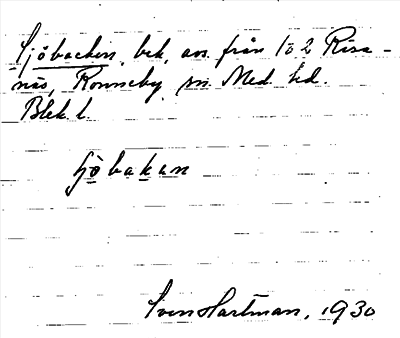 Sjöbacken, bek. avs. från 1 o 2 Risa-
näs, Ronneby sn Med. hd.
Blek. l.
sjöbakan
Sven Hartman, 1930